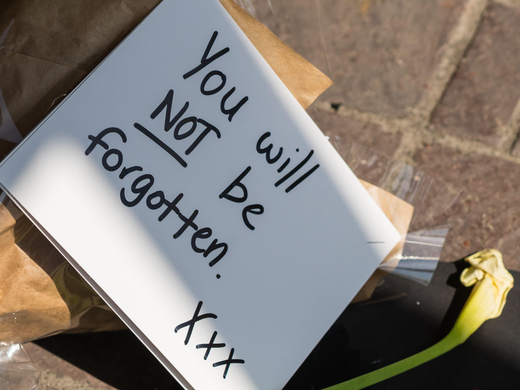 You will
NOT be
forgotten.
Xxx